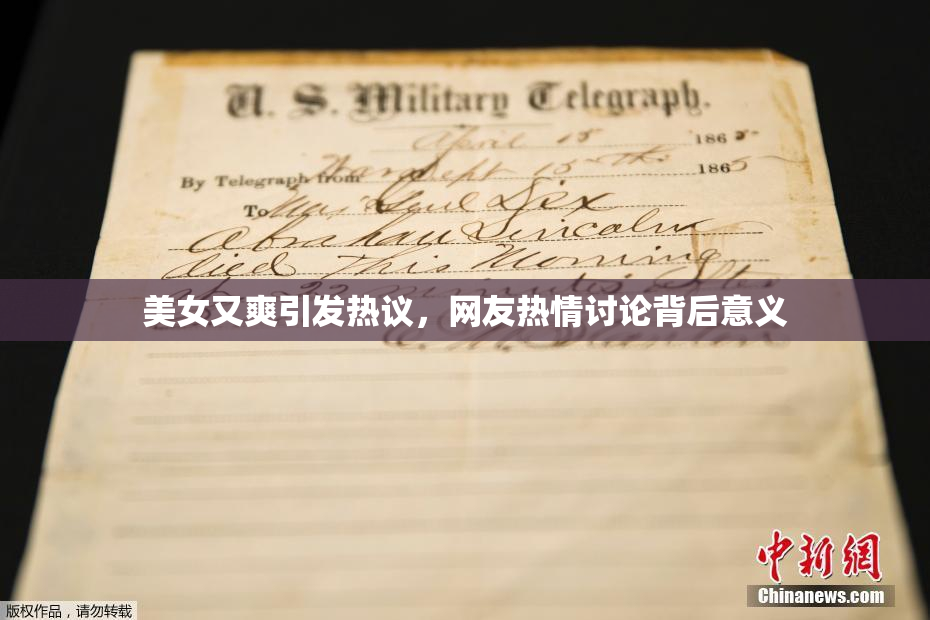 U. S. Military Telegraph.
April 15 1865
By Telegraph from War Dept 15th 1865
To Maj Genl Dix
Abraham Lincoln
died This Morning
22 minutes after
美女又爽引发热议，网友热情讨论背后意义
E. M. Stanton
中新网
Chinanews.com
版权作品，请勿转载